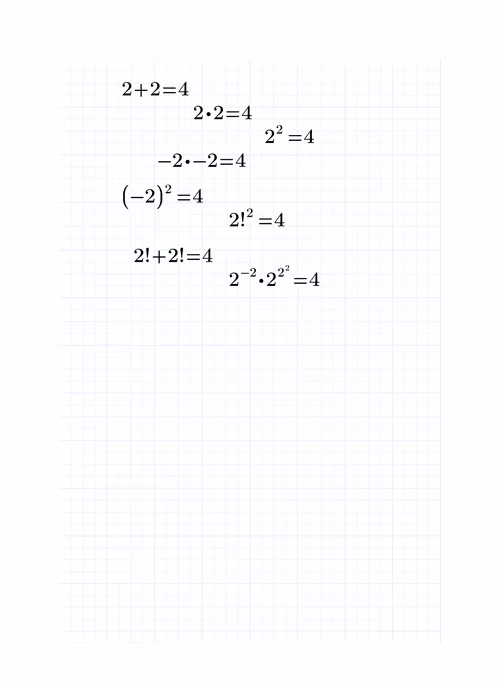 2+2=4
2•2=4
2² =4
−2•−2=4
(−2)² =4
2!² =4
2!+2!=4
2⁻²•2^2^2 =4